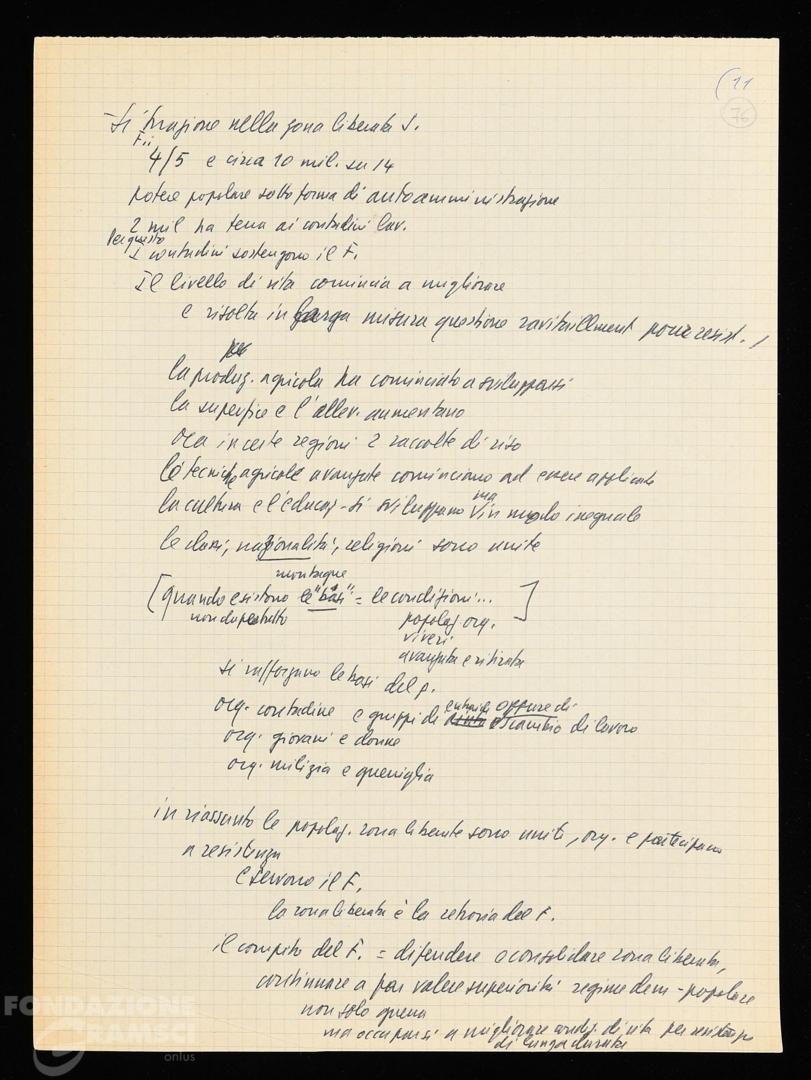 (11
76
- Situazione nella zona liberata S.
F.
4/5 e circa 10 mil. su 14
potere popolare sotto forma di autoamministrazione
2 mil ha terra ai contadini lav.
Per questo
I contadini sostengono il F.
Il livello di vita comincia a migliorare
e risolta in larga misura questione ravitaillement pour resist.
la produz. agricola ha cominciato a svilupparsi
la superficie e l'allev. aumentano
ora in certe regioni 2 raccolte di riso
le tecniche agricole avanzate cominciano ad essere applicate
la cultura e l'educaz. si sviluppano ma in modo ineguale
le classi, nazionalità, religioni sono unite
montagne
[quando esistono le "basi" = le condizioni... ]
non dappertutto
popolaz. org.
viveri
avanzata e ritirata
si rafforzano le basi del p.
org. contadine e gruppi di oppure di scambio di lavoro
org. giovani e donne
org. milizia e guerriglia
in riassunto le popolaz. zona liberata sono unite, org. e partecipano
a resistenza
e servono il F.
la zona liberata è la retrovia del F.
il compito del F. = difendere e consolidare zona liberata,
continuare a far valere superiorità regime dem-popolare
non solo guerra
ma occuparsi a migliorare condiz. di vita per resistenza
di lunga durata
FONDAZIONE
GRAMSCI
onlus